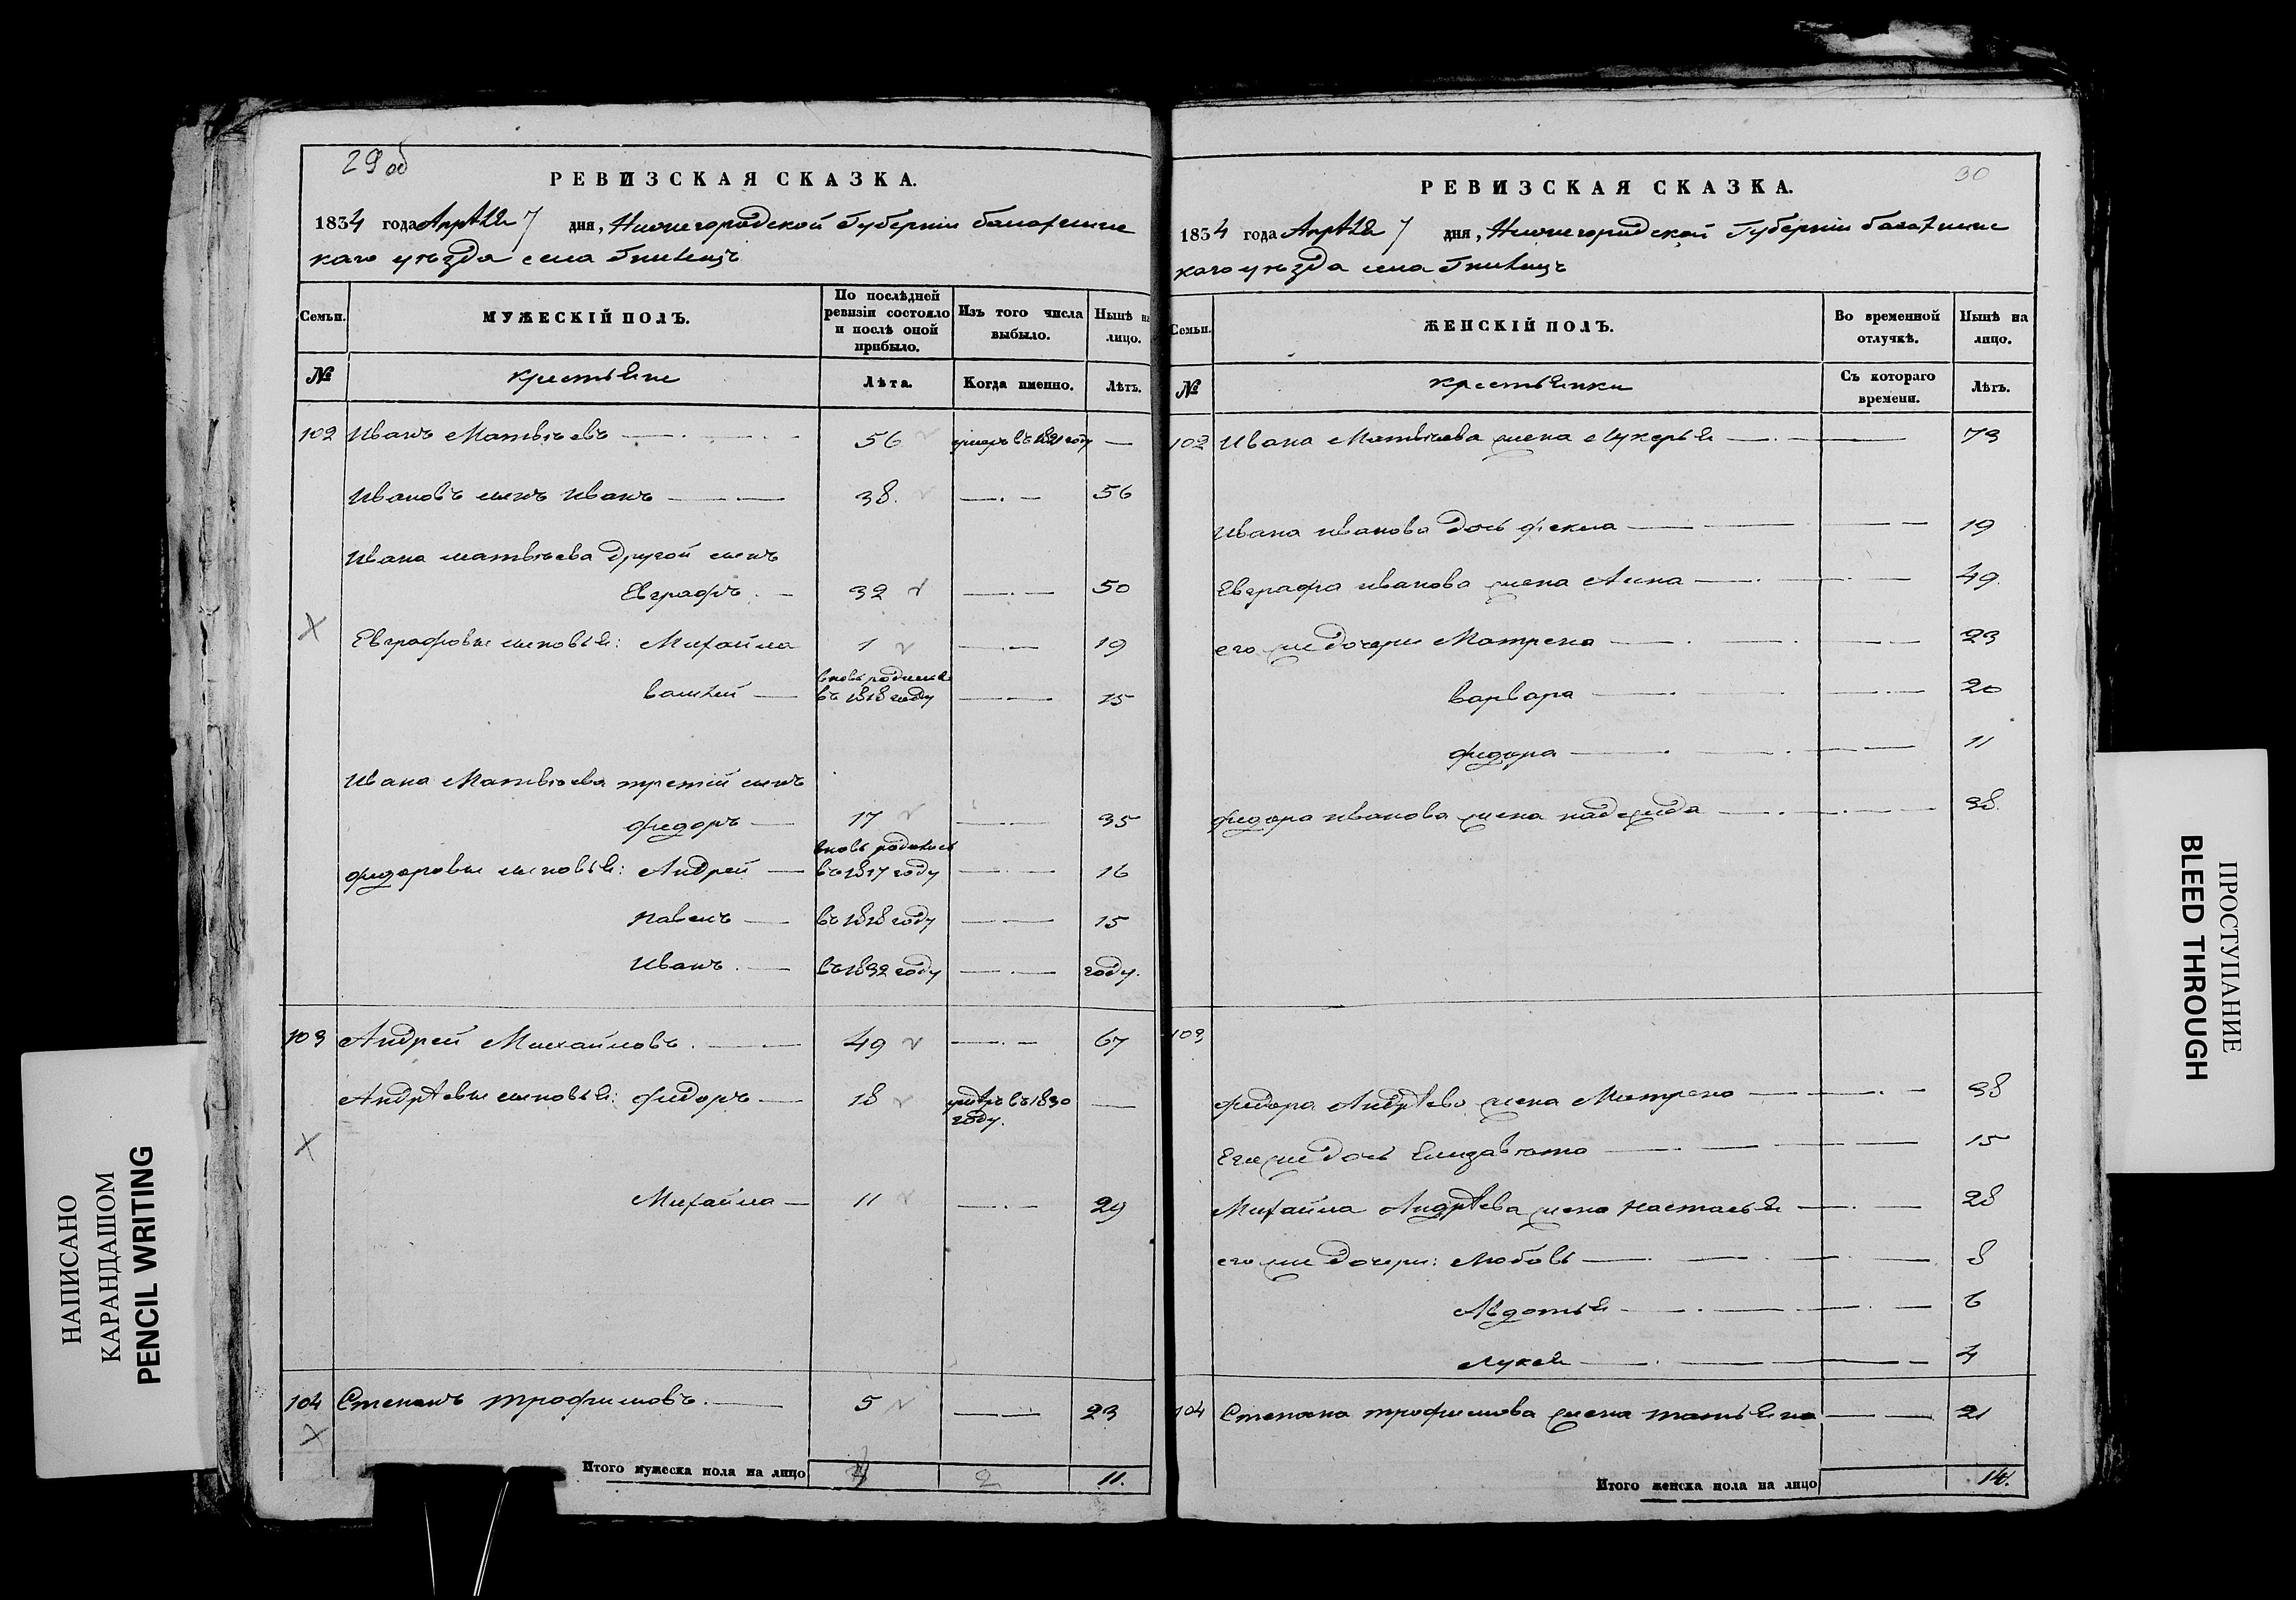 29 об
РЕВИЗСКАЯ СКАЗКА.
1834 года Апрѣля 7 дня, Нижегородской Губерніи балахнинс
каго уѣзда села
Семьи.
МУЖЕСКІЙ ПОЛЪ.
По послѣдней ревизіи состояло и послѣ оной прибыло.
Изъ того числа выбыло.
Нынѣ на лицо.
№
крестьяне
Лѣта.
Когда именно.
Лѣтъ.
102 Иванъ Матвѣевъ 56 умеръ въ 1821 году
Ивановъ сынъ Иванъ 38. 56
Ивана матвѣева другой сынъ
Евграфъ 32 50
Евграфовы сыновья: Михайла 1 19
вновь рожденные
василей въ 1818 году 15
Ивана Матвѣева третій сынъ
федоръ 17 35
вновь родились
федоровы сыновья: Андрей въ 1817 году 16
павелъ въ 1818 году 15
Иванъ въ 1832 году году.
103 Андрей Михайловъ 49 67
Андрѣевы сыновья: федоръ 18 умеръ въ 1830
году.
Михайла 11 29
104 Степанъ трофимовъ 5 23
Итого мужеска пола на лицо 2 11.
30
РЕВИЗСКАЯ СКАЗКА.
1834 года Апрѣля 7 дня, Нижегородской Губерніи балахнинс
каго уѣзда села
Семьи.
ЖЕНСКІЙ ПОЛЪ.
Во временной отлучкѣ.
Нынѣ на лицо.
№
крестьянки
Съ котораго времени.
Лѣтъ.
102 Ивана Матвѣева жена Лукерья 73
Ивана иванова дочь фекла 19
Евграфа иванова жена Анна 49.
его же дочери Матрена 23
варвара 20
федора 11
федора иванова жена надежда 38.
103
федора Андрѣева жена Матрена 38
Его же дочь Елизавѣта 15
Михайла Андрѣева жена настасья 28
его же дочери: Любовь 8
Авдотья 6
4
104 Степана трофимова жена татьяна 21
Итого женска пола на лицо 14.
НАПИСАНО
КАРАНДАШОМ
PENCIL WRITING
ПРОСТУПАНИЕ
BLEED THROUGH